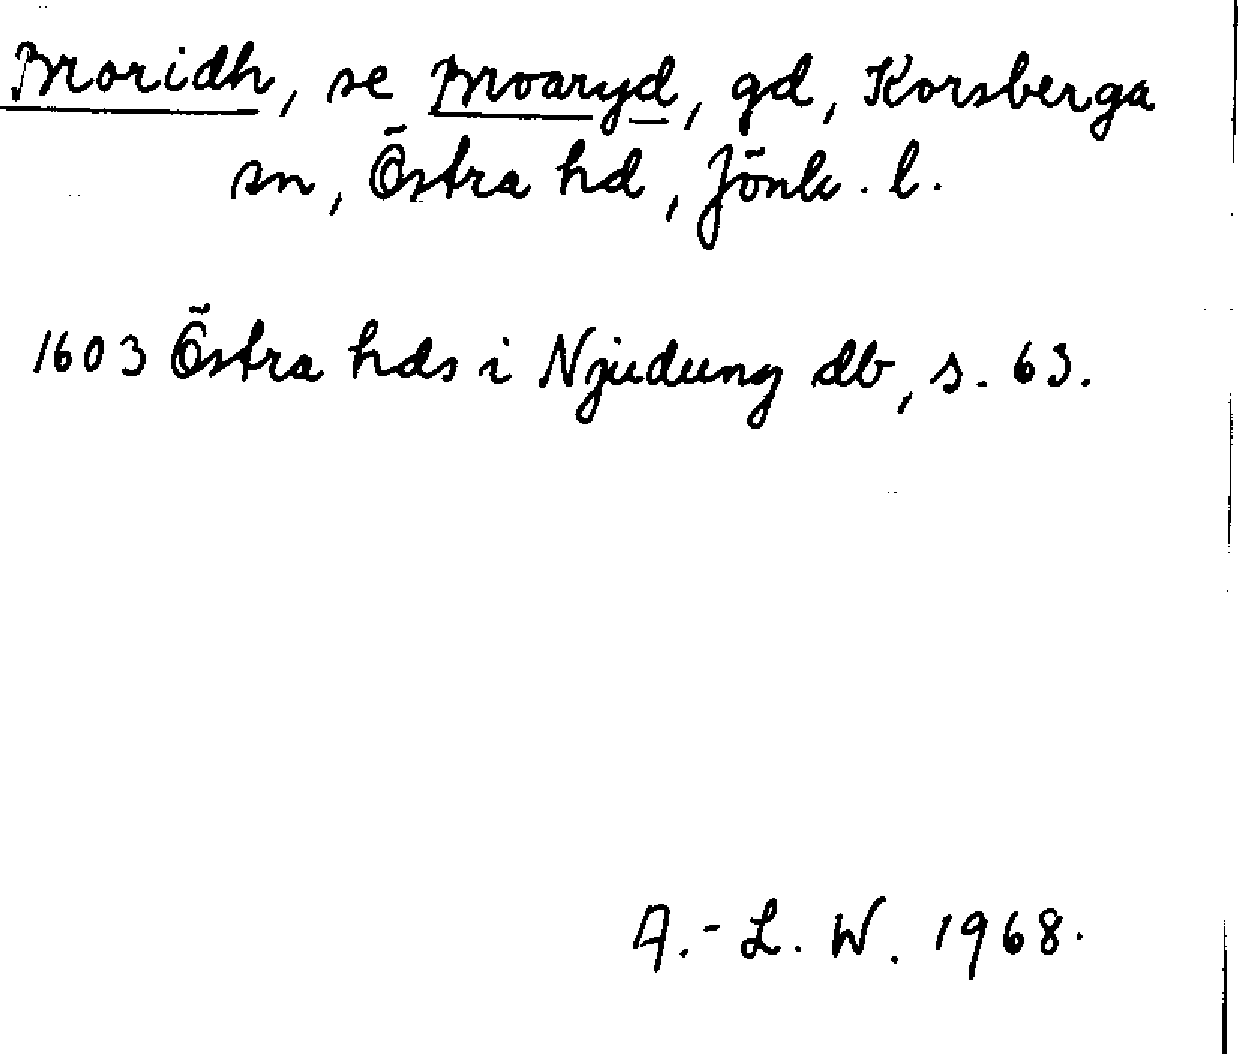 Moridh, se Moaryd, gd, Korsberga
sn, Östra hd, Jönk. l.
1603 Östra hds i Njudung db, s. 63.
A.-L. W. 1968.